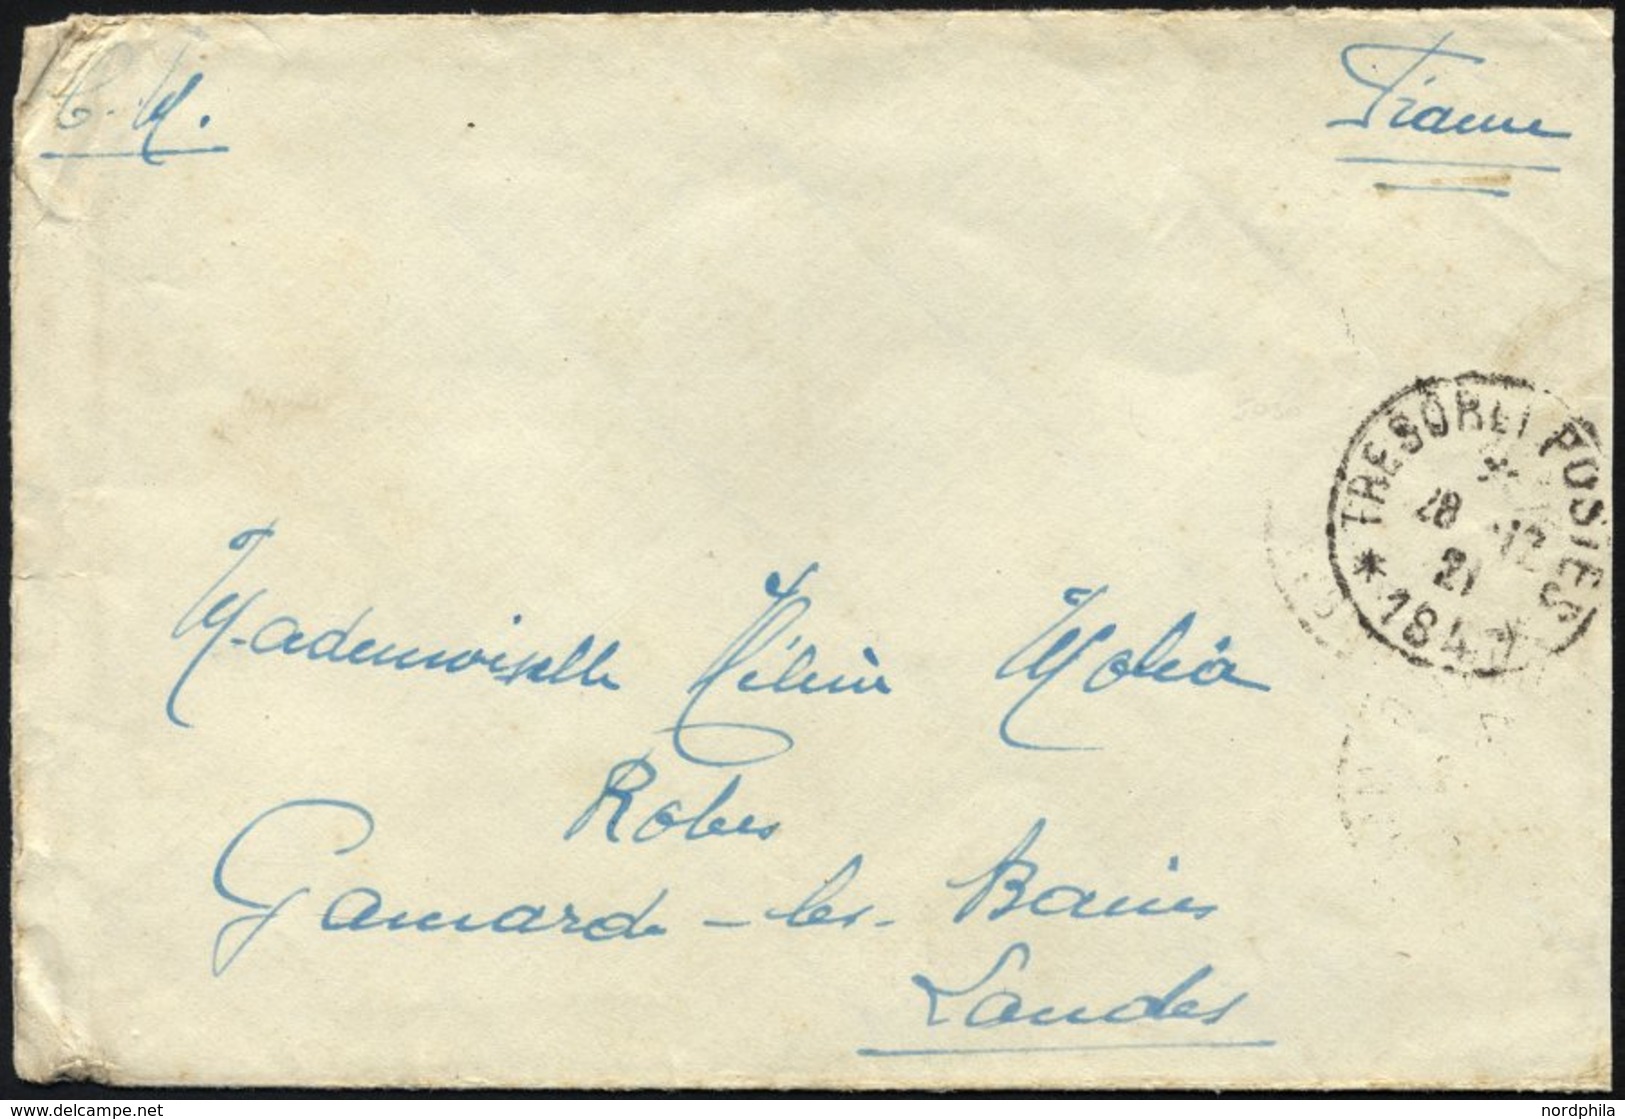 France
TRESOR ET POSTES
28 -12
21
* 184
Mademoiselle
Robes
Gamarde-les-Bains
Landes
www.delcampe.net
nordphila